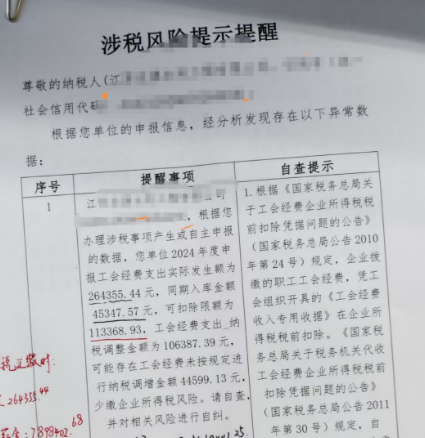 涉税风险提示提醒
尊敬的纳税人(江
社会信用代码
根据您单位的申报信息，经分析发现存在以下异常数
据：
序号
提醒事项
自查提示
1
江
公司
，根据您
办理涉税事项产生或自主申报
的数据，您单位2024年度申
报工会经费支出实际发生额为
264355.44元，同期入库金额
45347.57元，可扣除限额为
113368.93，工会经费支出_纳
税调整金额为106387.39元，
可能存在工会经费未按规定进
行纳税调增金额44599.13元，
少缴企业所得税风险。请自查，
并对相关风险进行自纠。
1.根据《国家税务总局关
于工会经费企业所得税税
前扣除凭据问题的公告》
（国家税务总局公告2010
年第24号）规定，企业拨
缴的职工工会经费，凭工
会组织开具的《工会经费
收入专用收据》在企业所
得税税前扣除。《国家税
务总局关于税务机关代收
工会经费企业所得税税前
扣除凭据问题的公告》
（国家税务总局公告2011
年第30号）规定，自
264355.44
7898402.68